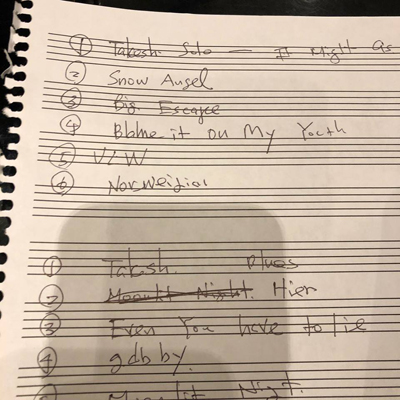 ① Takeshi Solo — It Might as
② Snow Angel
③ Big Escape
④ Bblme it on My Youth
⑤ VLW
⑥
① Takesh. Blues
② Moonlit Night. Hier
③ Even You have to lie
④ gdbby.
Moonlit Night.